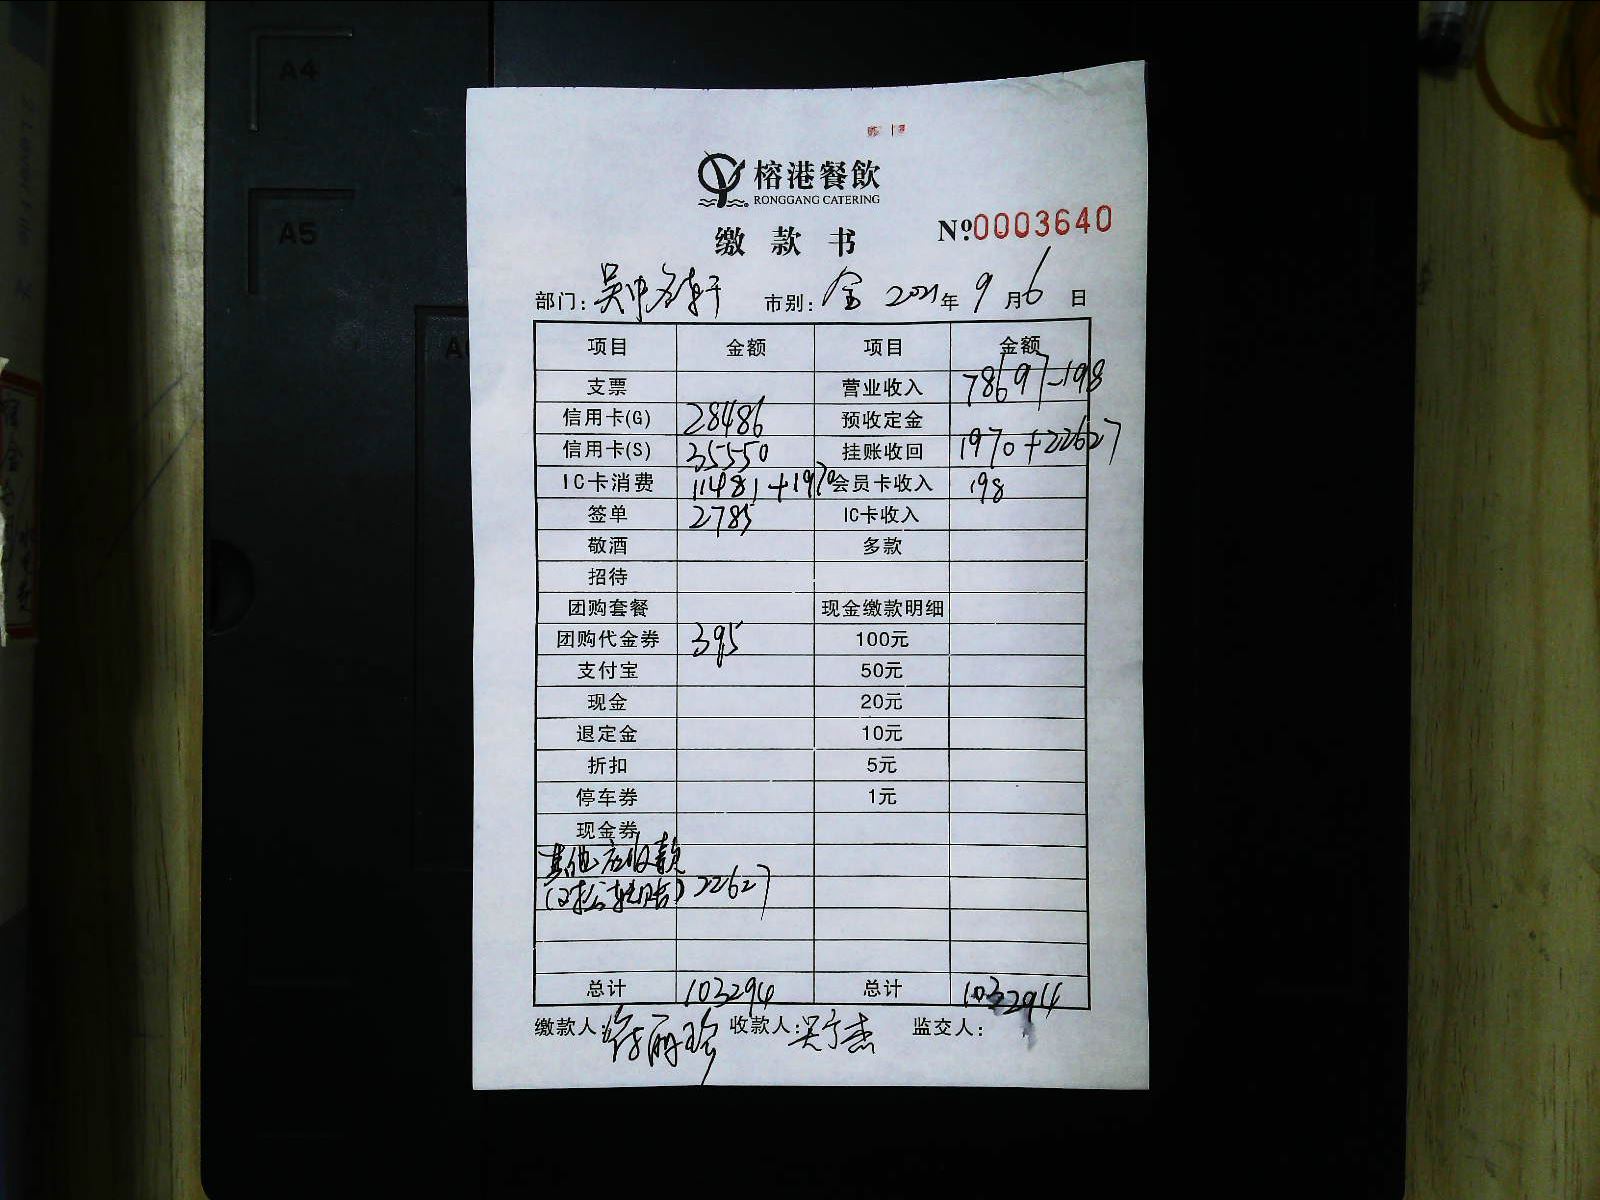 A4
A5
榕港餐飲
RONGGANG CATERING
缴款书
Nº:0003640
部门：吴中名轩 市别：全 2021年9月6日
项目 金额 项目 金额
支票 营业收入 78697-198
信用卡(G) 28486 预收定金
信用卡(S) 35550 挂账收回 1970+22627
IC卡消费 11481+1970 会员卡收入 198
签单 2785 IC卡收入
敬酒 多款
招待
团购套餐 现金缴款明细
团购代金券 395 100元
支付宝 50元
现金 20元
退定金 10元
折扣 5元
停车券 1元
现金券
其他应收款
(对公转账) 22627
总计 103294 总计 103294
缴款人：徐丽珍 收款人：吴宁杰 监交人：